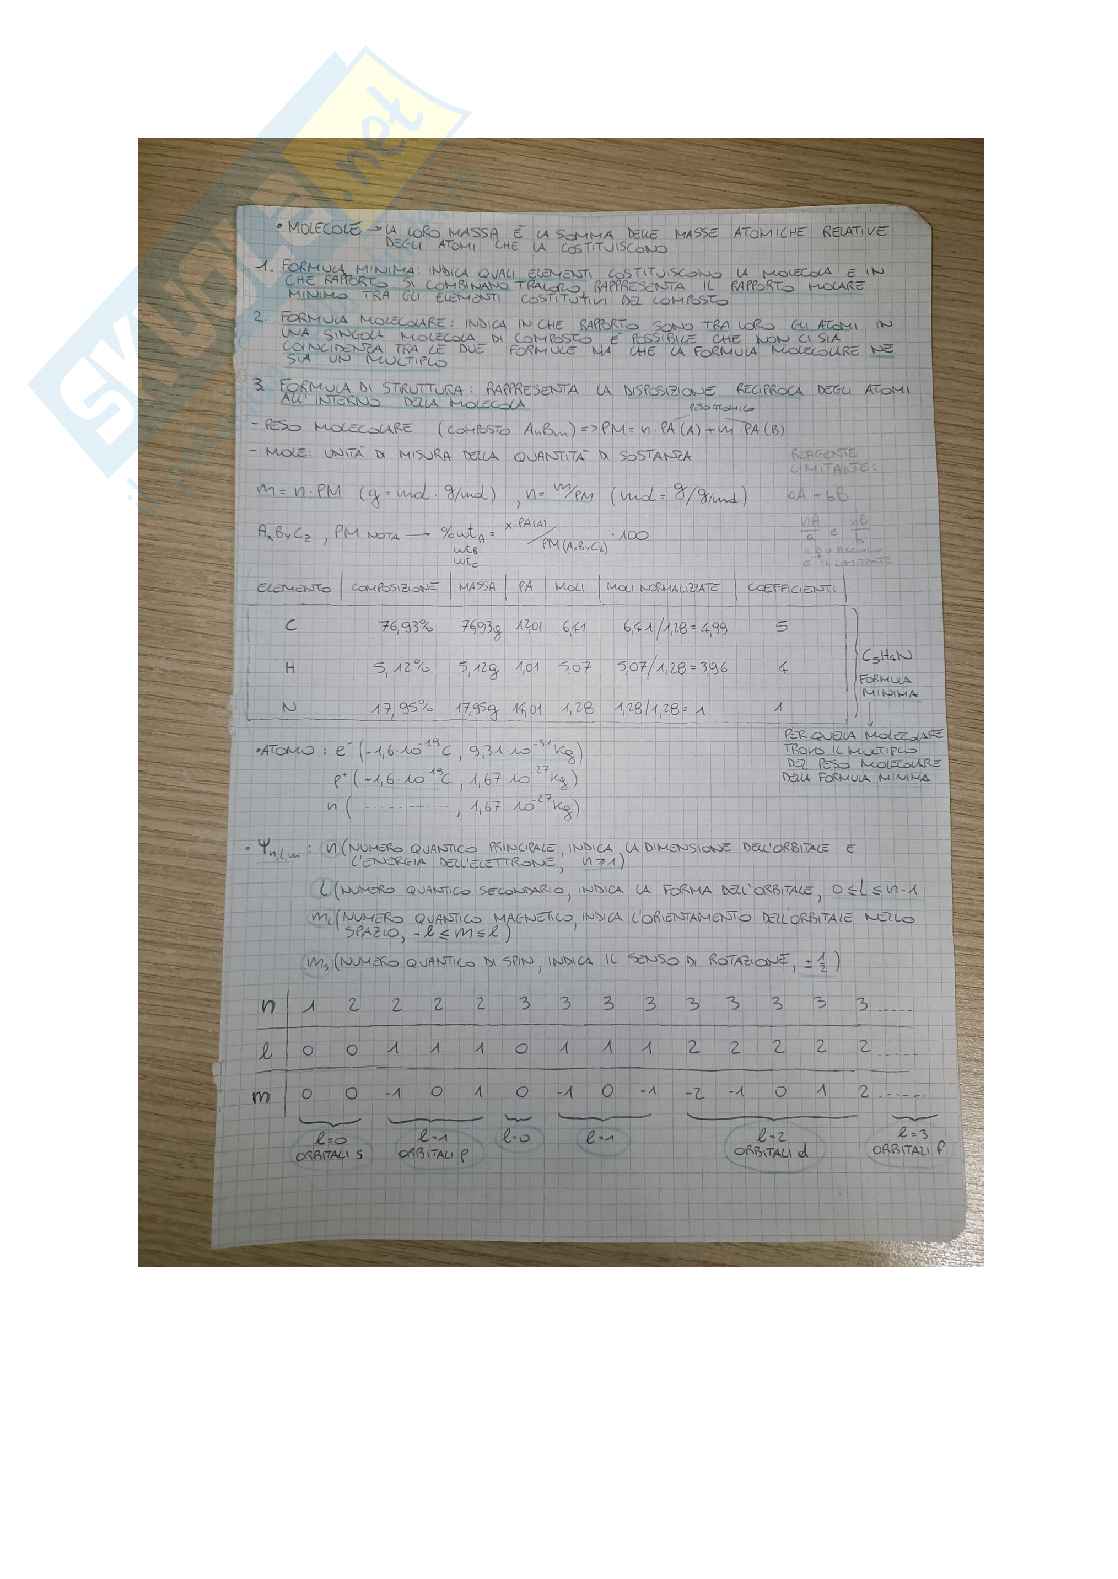 SKUOLA.net
• MOLECOLE → LA LORO MASSA È LA SOMMA DELLE MASSE ATOMICHE RELATIVE
DEGLI ATOMI CHE LA COSTITUISCONO
1. FORMULA MINIMA: INDICA QUALI ELEMENTI COSTITUISCONO LA MOLECOLA E IN
CHE RAPPORTO SI COMBINANO TRA LORO RAPPRESENTA IL RAPPORTO MOLARE
MINIMO TRA GLI ELEMENTI COSTITUTIVI DEL COMPOSTO
2. FORMULA MOLECOLARE: INDICA IN CHE RAPPORTO SONO TRA LORO GLI ATOMI IN
UNA SINGOLA MOLECOLA DI COMPOSTO È POSSIBILE CHE NON CI SIA
COINCIDENZA TRA LE DUE FORMULE MA CHE LA FORMULA MOLECOLARE NE
SIA UN MULTIPLO
3. FORMULA DI STRUTTURA: RAPPRESENTA LA DISPOSIZIONE RECIPROCA DEGLI ATOMI
ALL'INTERNO DELLA MOLECOLA
PESO ATOMICO
- PESO MOLECOLARE (COMPOSTO AnBm) => PM = n · PA(A) + m PA(B)
- MOLE: UNITÀ DI MISURA DELLA QUANTITÀ DI SOSTANZA
REAGENTE
LIMITANTE:
m = n · PM (g = mol · g/mol) , n = m/PM (mol = g/g/mol)
aA - bB
AxByCz , PM NOTA → %wtA = x · PA(A)/PM(AxByCz) · 100
wtB
wtC
nA/a e nB/b
ELEMENTO | COMPOSIZIONE | MASSA | PA | MOLI | MOLI NORMALIZZATE | COEFFICIENTI
C 76,93% 76,93g 12,01 6,41 6,41/1,28 = 4,99 5
H 5,12% 5,12g 1,01 5,07 5,07/1,28 = 3,96 4
N 17,95% 17,95g 14,01 1,28 1,28/1,28 = 1 1
C5H4N
FORMULA
MINIMA
PER QUELLA MOLECOLARE
TROVO IL MULTIPLO
DEL PESO MOLECOLARE
DELLA FORMULA MINIMA
• ATOMO: e⁻ (-1,6·10⁻¹⁹C , 9,31 10⁻³¹Kg)
p⁺ (-1,6·10⁻¹⁹C , 1,67 10⁻²⁷Kg)
n (------------, 1,67 10⁻²⁷Kg)
• Ψn,l,m : n (NUMERO QUANTICO PRINCIPALE, INDICA LA DIMENSIONE DELL'ORBITALE E
L'ENERGIA DELL'ELETTRONE, n ≥ 1)
l (NUMERO QUANTICO SECONDARIO, INDICA LA FORMA DELL'ORBITALE, 0 ≤ l ≤ n-1
ml (NUMERO QUANTICO MAGNETICO, INDICA L'ORIENTAMENTO DELL'ORBITALE NELLO
SPAZIO, -l ≤ m ≤ l)
ms (NUMERO QUANTICO DI SPIN, INDICA IL SENSO DI ROTAZIONE, ± 1/2)
n | 1 2 2 2 2 3 3 3 3 3 3 3 3 3 ......
l | 0 0 1 1 1 0 1 1 1 2 2 2 2 2 ......
m | 0 0 -1 0 1 0 -1 0 -1 -2 -1 0 1 2 ......
l=0 l=1 l=0 l=1 l=2 l=3
ORBITALI s ORBITALI p ORBITALI d ORBITALI f